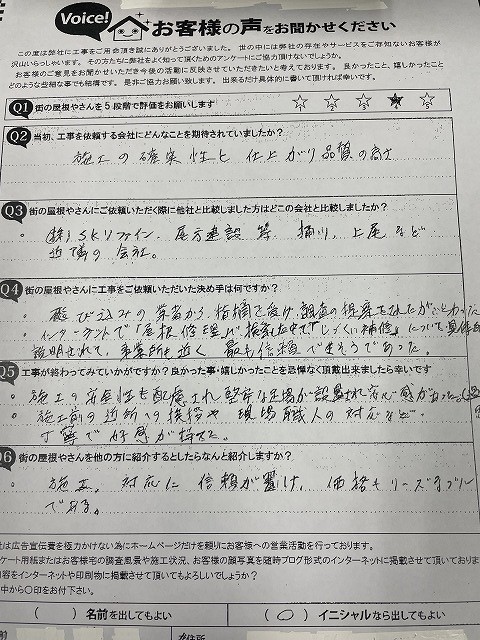 Voice! お客様の声をお聞かせください
この度は弊社に工事をご用命頂き誠にありがとうございました。世の中には弊社の存在やサービスをご存知ないお客様が
沢山いらっしゃいます。その方たちに弊社をよく知って頂くためのアンケートにご協力頂けないでしょうか。
お客様のご意見をお聞かせいただき今後の活動に反映させていただきたいと考えております。良かったこと、嬉しかったこと
どのような些細な事でも結構です。是非ご協力お願い致します。出来るだけ具体的に書いて頂ければ幸いです。
Q1 街の屋根やさんを5段階で評価をお願いします
Q2 当初、工事を依頼する会社にどんなことを期待されていましたか?
施工の確実性と仕上がり品質の高さ
Q3 街の屋根やさんにご依頼いただく際に他社と比較しました方はどこの会社と比較しましたか?
(株)SKリファイン、尾方建設 等 桶川、上尾など
近隣の会社。
Q4 街の屋根やさんに工事をご依頼いただいた決め手は何ですか?
飛び込みの業者から指摘を受け、調査の提案をされたが
インターネットで「屋根修理」で検索した中で「しっくい補修」について具体的
説明されて、事業所も近く、最も信頼できそうであった。
Q5 工事が終わってみていかがですか?良かった事・嬉しかったことを恐悼なく頂戴出来ましたら幸いです
施工の安全性も配慮され堅牢な足場が設置され安心感があった。
施工前の近所への挨拶や現場職人の対応など
丁寧で好感が持てた。
Q6 街の屋根やさんを他の方に紹介するとしたらなんと紹介しますか?
施工、対応に信頼が置け、価格もリーズナブル
である。
社は広告宣伝費を極力かけない為にホームページだけを頼りにお客様への営業活動を行っております。
ケート用紙またはお客様宅の調査風景や施工状況、お客様の顔写真を随時ブログ形式のインターネットに掲載させて頂いておりま
内容をインターネットや印刷物に掲載させて頂いてもよろしいでしょうか?
中から〇印をお付下さい。
( ) 名前を出してもよい (○) イニシャルなら出してもよい